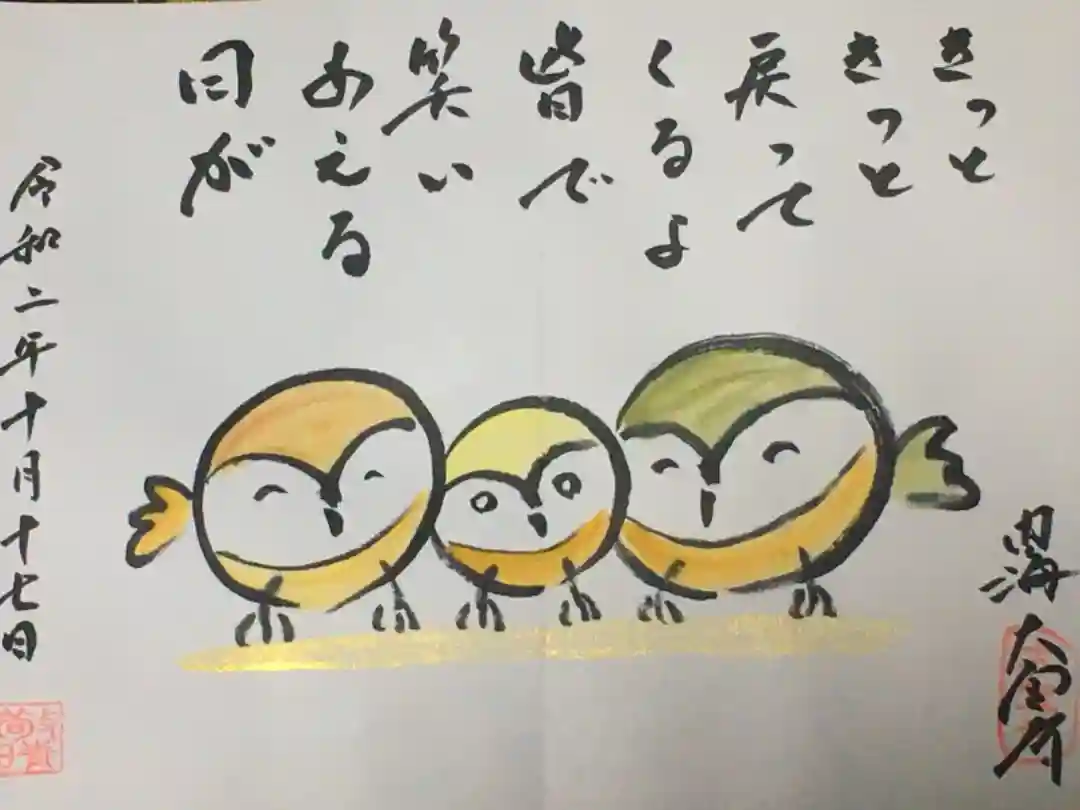 きっと
きっと
戻って
くるよ
皆で
笑い
あえる
日が
令和二年十月十七日
内海